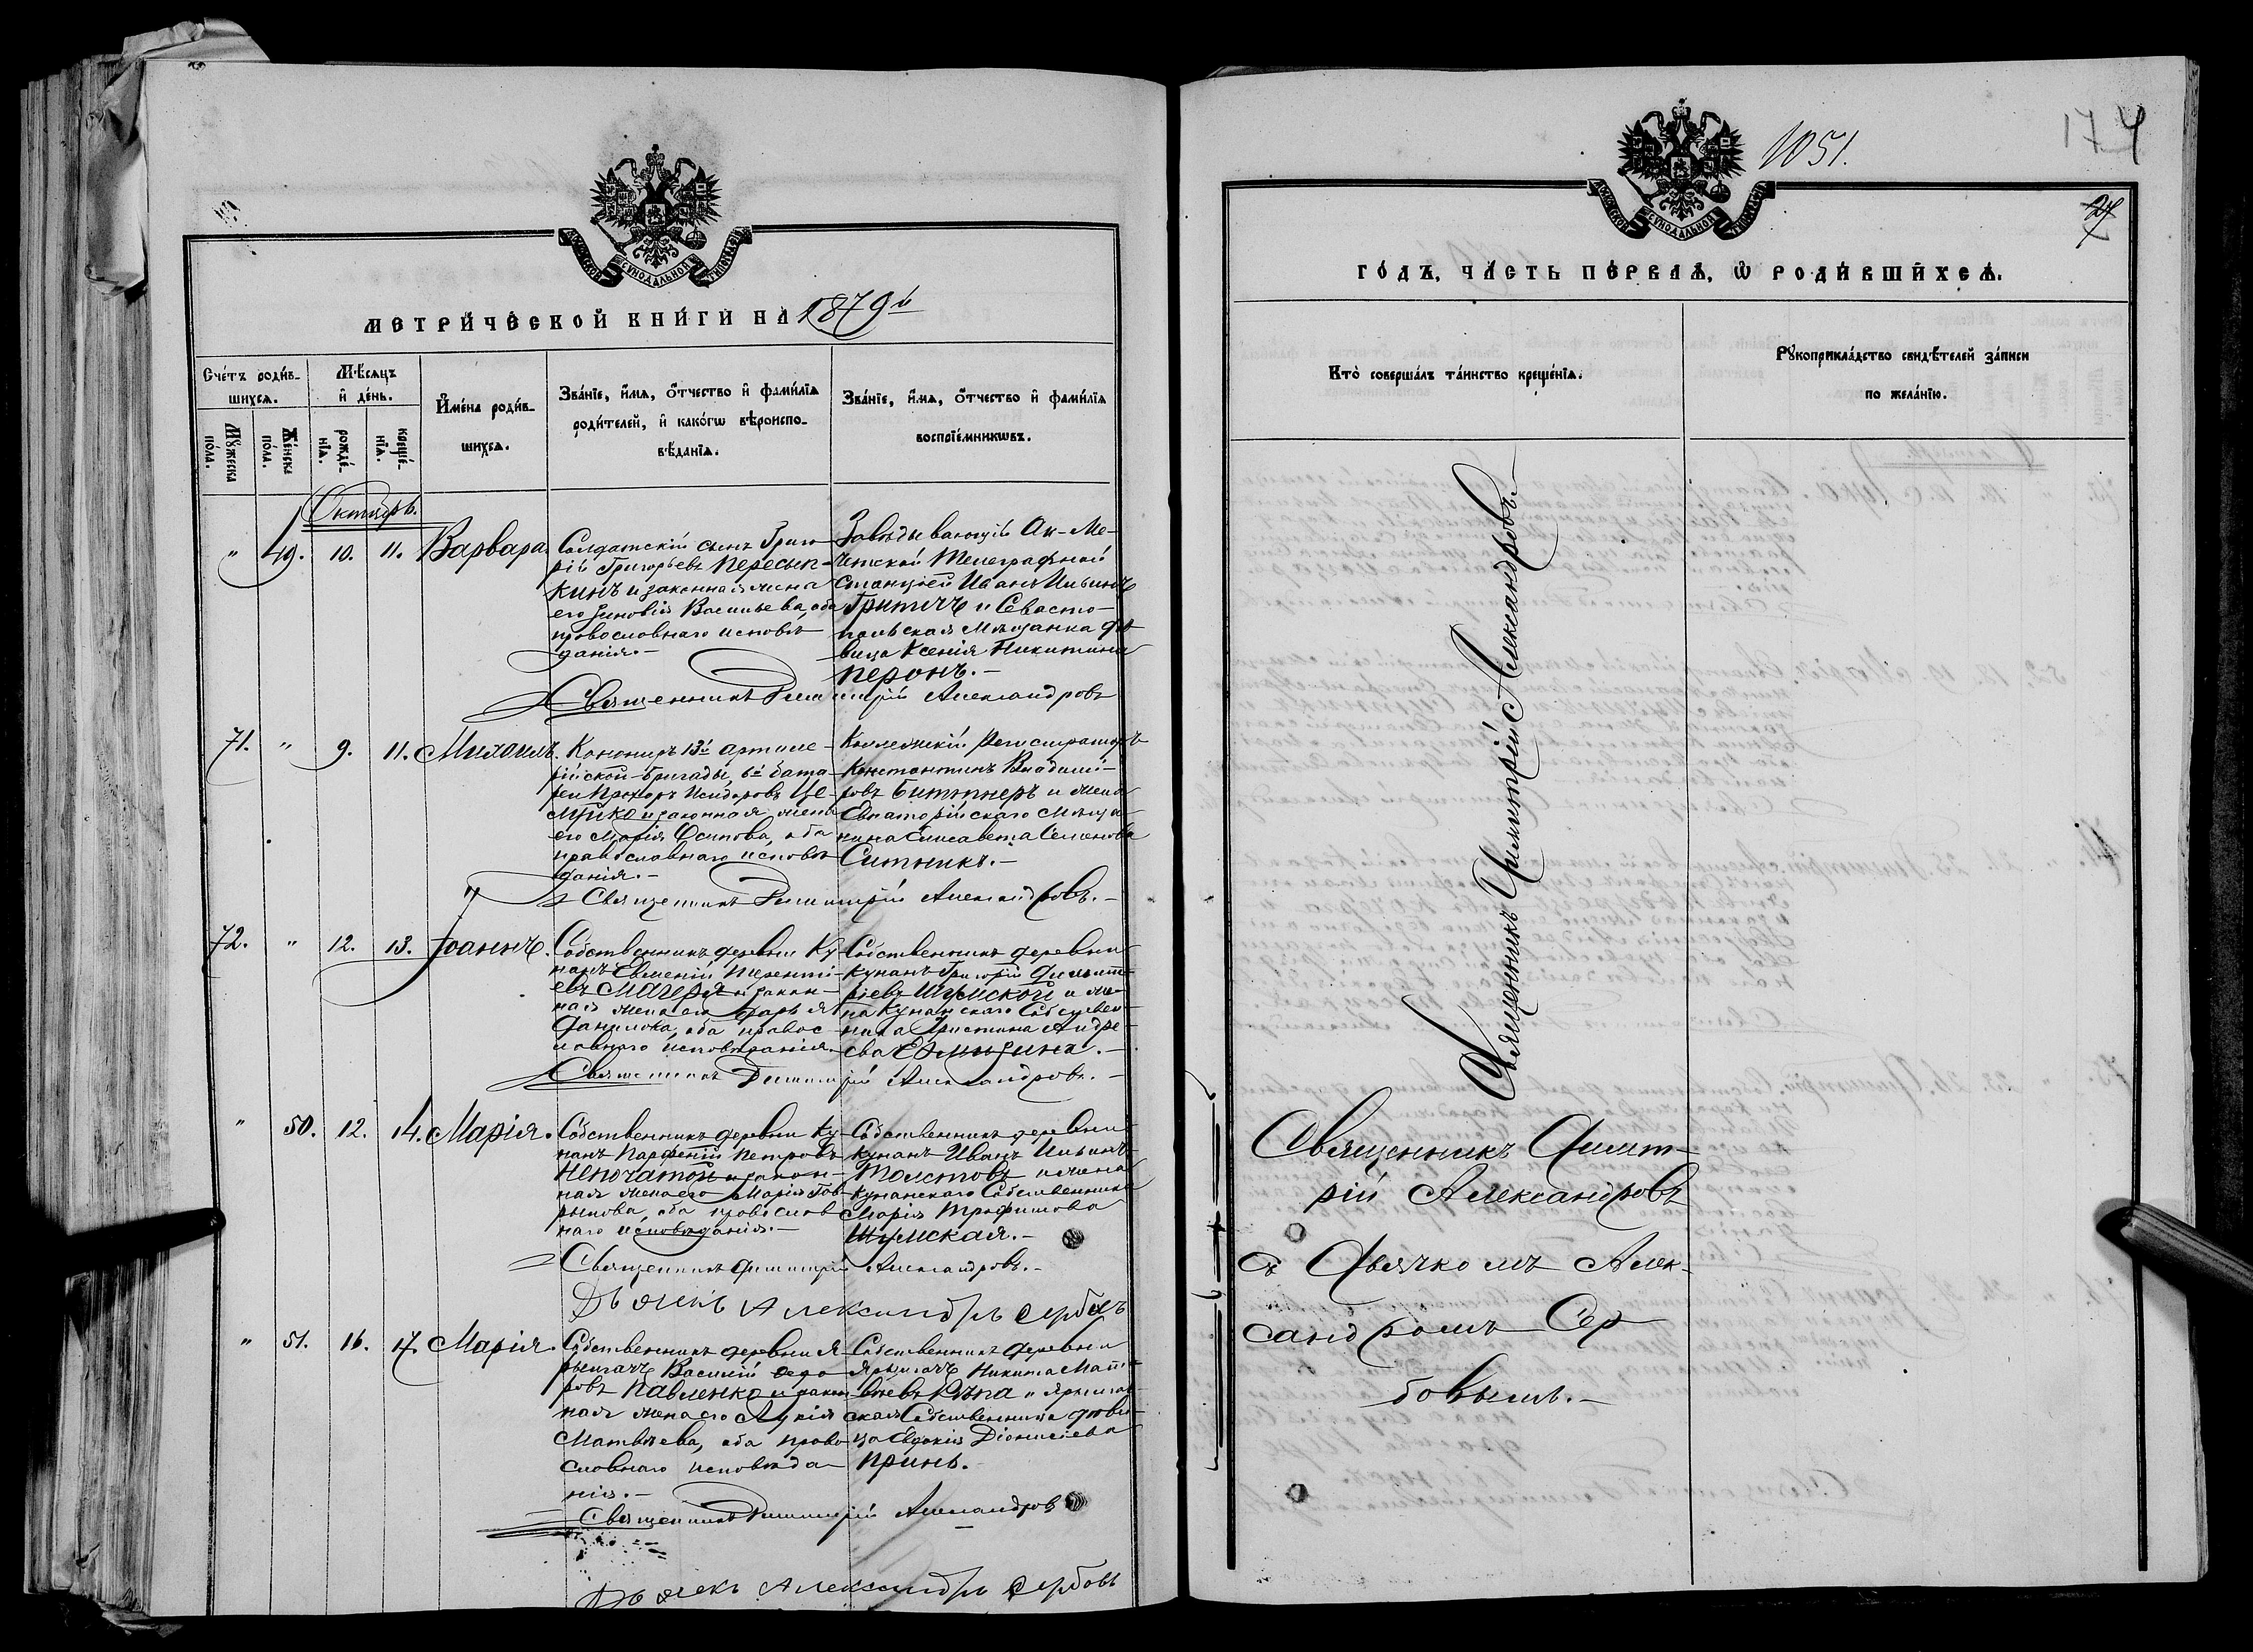 МЕТРИЧЕСКОЙ КНИГИ НА 1879й
Счетъ родив-
шихся.
Мѣсяцъ
и день.
Имена родив-
шихся.
Званіе, имя, отчество и фамилія
родителей, и какогѡ вѣроиспо-
вѣданія.
Званіе, имя, отчество и фамилія
воспріемникѡвъ.
Мужеска
пола.
Женска
пола.
рожде-
нія.
креще-
нія.
Октябрь.
" 49. 10. 11. Варвара.
Солдатскій сынъ Григо-
рій Григорьевъ Пересып-
кинъ и законная жена
его Зиновія Васильева, оба
православнаго исповѣ-
данія.-
Завѣдывающій Ак-Ме-
четской Телеграфной
Станціей Иванъ Ильинъ
Гритчъ и Севасто-
польская Мѣщанка дѣ-
вица Ксенія Никитина
Перонъ.-
Священникъ Димитрій Александровъ
71. " 9. 11. Михаилъ.
Канониръ 13й артиле-
рійской бригады, 6й бата-
реи Прохоръ Исидоровъ Це-
мѣйко и законная жена
его Марія Осипова, оба
православнаго исповѣ-
данія.-
Коллежскій Регистраторъ
Константинъ Владимі-
ровъ Биттнеръ и жена
Евпаторійскаго мѣща-
нина Елисавета Семенова
Ситникъ.-
Священникъ Димитрій Александровъ.-
72. " 12. 13. Іоаннъ.
Собственникъ деревни Ку-
нанъ Евменій Теренті-
евъ Магеря и закон-
ная жена его Дарья
Данилова, оба правос-
лавнаго исповѣданія.
Собственникъ деревни
Кунанъ Григорій Димит-
ріевъ Шумской и же-
на Кунанскаго Собствен-
ника Христина Андре-
ева
Священникъ Димитрій Александровъ.-
" 50. 12. 14. Марія.
Собственникъ деревни Ку-
нанъ Парфеній Петровъ
Непочатой и закон-
ная жена его Марія Гав-
рилова, оба православ-
наго исповѣданія.-
Собственникъ деревни
Кунанъ Иванъ Ильинъ
Толстовъ и жена
Кунанскаго Собственника
Марія Трофимова
Шумская.-
Священникъ Димитрій Александровъ.-
Дьячекъ Александръ Сербовъ
" 51. 16. 17. Марія.
Собственникъ деревни Я-
рылгачъ Василій Ѳедо-
ровъ Павленко и закон-
ная жена его Лукія
Матвѣева, оба право-
славнаго исповѣда-
нія.-
Собственникъ деревни
Ярылгачъ Никита Мат-
вѣевъ Рѣпа и Ярылгач-
ская Собственница дѣви-
ца Евдокія Діонисіева
Принь.
Священникъ Димитрій Александровъ
Дьячекъ Александръ Сербовъ
1051.
174
ГОДЪ, ЧАСТЬ ПЕРВАЯ, Ѡ РОДИВШИХСЯ.
Кто совершалъ таинство крещенія.
Рукоприкладство свидѣтелей записи
по желанію.
Священникъ Димитрій Александровъ.-
Священникъ Димит-
рій Александровъ
съ Дьячкомъ Алек-
сандромъ Сер-
бовымъ.-